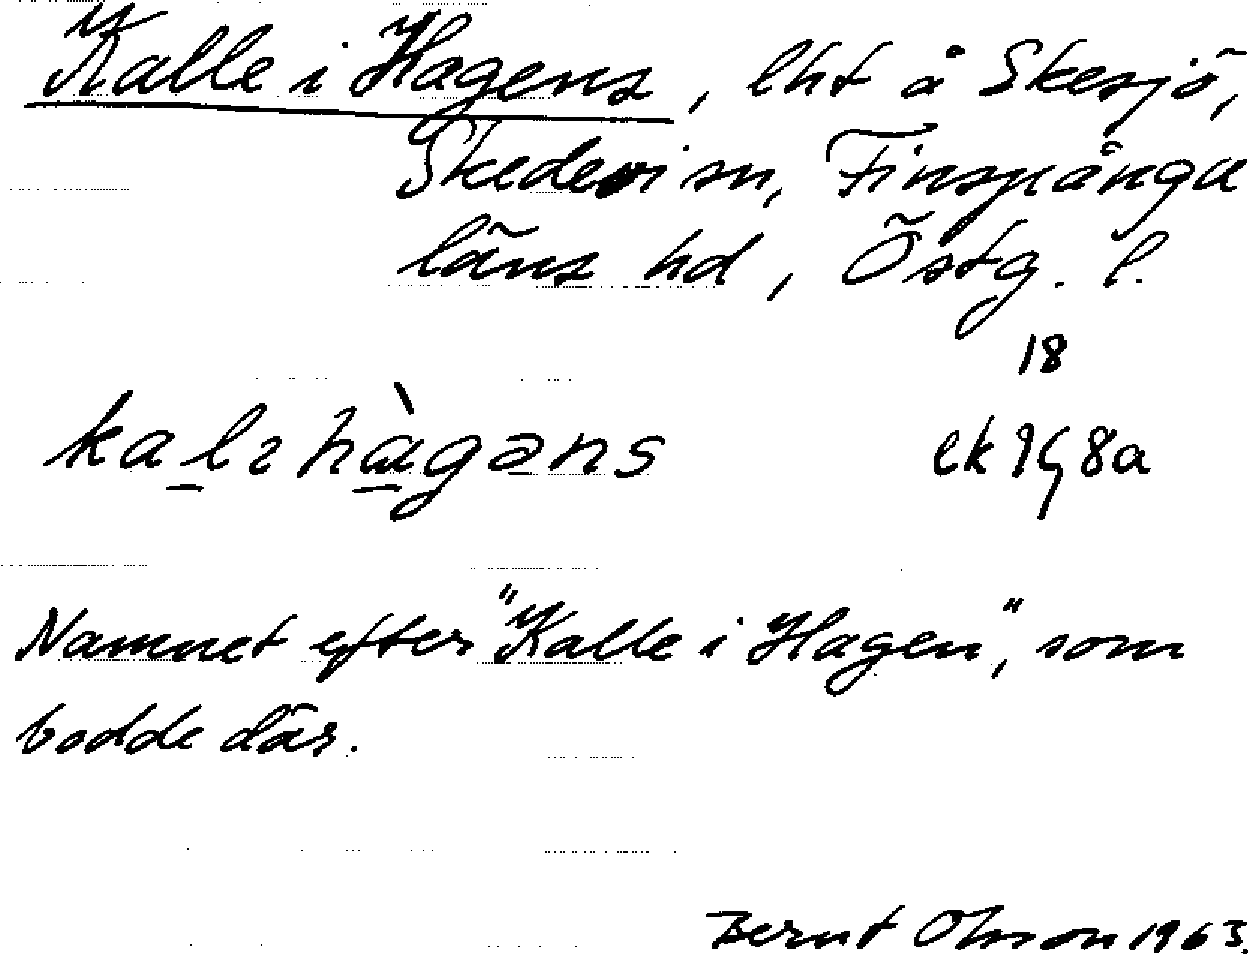 Kalle i Hagens, lht å Skesjö,
Skedevi sn, Finspånga
läns hd, Östg. l.
18
kalɩhàgəns ek 9G8a
Namnet efter "Kalle i Hagen", som
bodde där.
Bernt Olsson 1963.